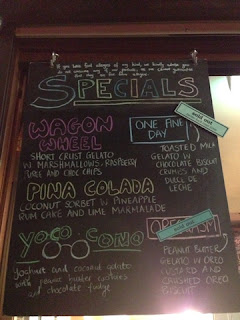 If you have food allergies of any kind, we kindly advise you
do not consume any of our products, as we cannot guarantee
that they are
SPECIALS
WAGON
WHEEL
SHORT CRUST GELATO
W MARSHMALLOWS, RASPBERRY
PUREE AND CHOC CHIPS
ONE FINE
DAY
TOASTED MILK
GELATO W
CHOCOLATE BISCUIT
CRUMBS AND
DULCE DE
LECHE
PINA COLADA
COCONUT SORBET W PINEAPPLE
RUM CAKE AND LIME MARMALADE
YOCO ONO
Yoghurt and coconut gelato
with peanut butter cookies
and chocolate fudge
PEANUT BUTTER
GELATO W OREO
CUSTARD AND
CRUSHED OREO
BISCUIT